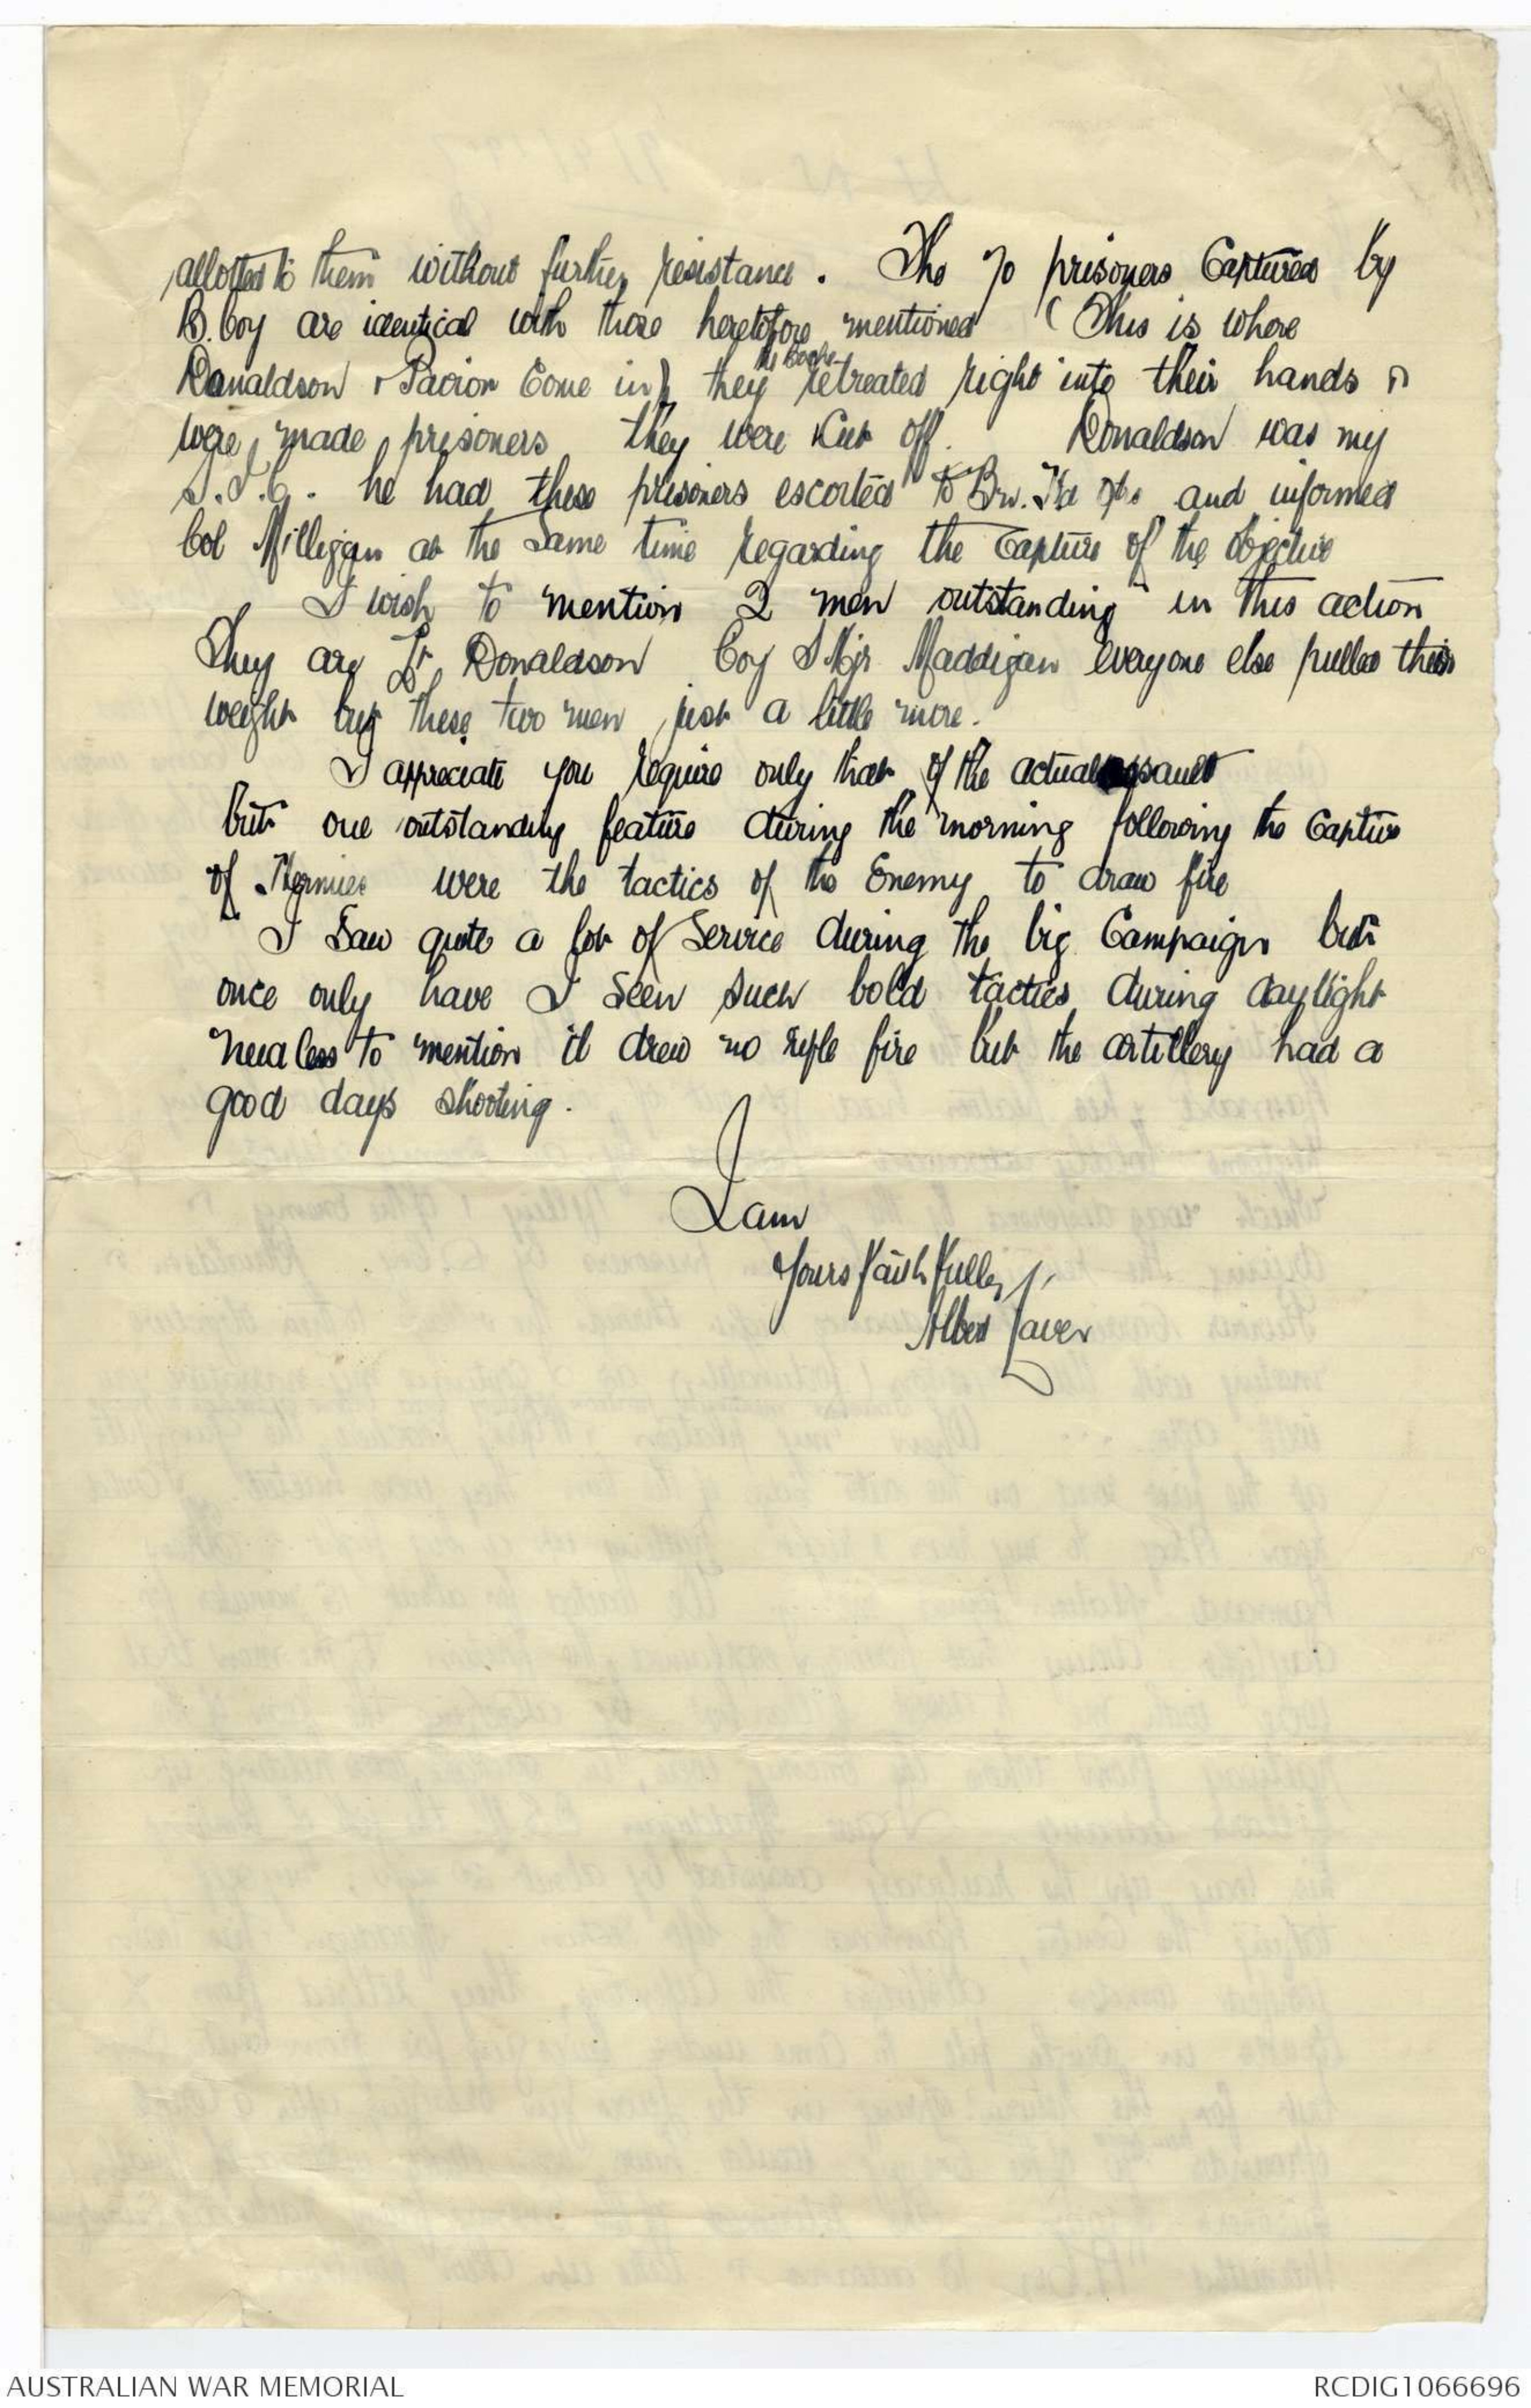 allotted to them without further resistance. The 70 prisoners Captured by
B. Coy are identical with those heretofore mentioned (This is where
Donaldson & Pacion Come in) they the Boche retreated right into their hands &
were made prisoners they were Cut off. Donaldson was my
S.I.C. he had these prisoners escorted to Bn. Hd Qrs and informed
Col Milligan at the Same time regarding the Capture of the objective
I wish to mention 2 men outstanding in this action
They are Lt Donaldson Coy S Mjr Maddigan everyone else pulled their
weight but these two men just a little more.
I appreciate you require only that of the actual assault
but one outstanding feature during the morning following the Capture
of Hermies were the tactics of the Enemy to draw fire
I Saw quite a lot of Service during the big Campaign but
once only have I Seen such bold tactics during daylight
needless to mention it drew no rifle fire but the artillery had a
good days shooting.
I am
Yours faithfully,
Albert Laver
AUSTRALIAN WAR MEMORIAL
RCDIG1066696